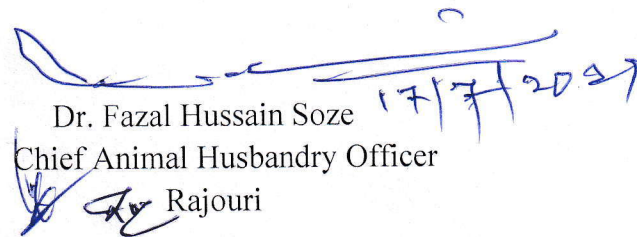 17/7/2021
Dr. Fazal Hussain Soze
Chief Animal Husbandry Officer
Rajouri